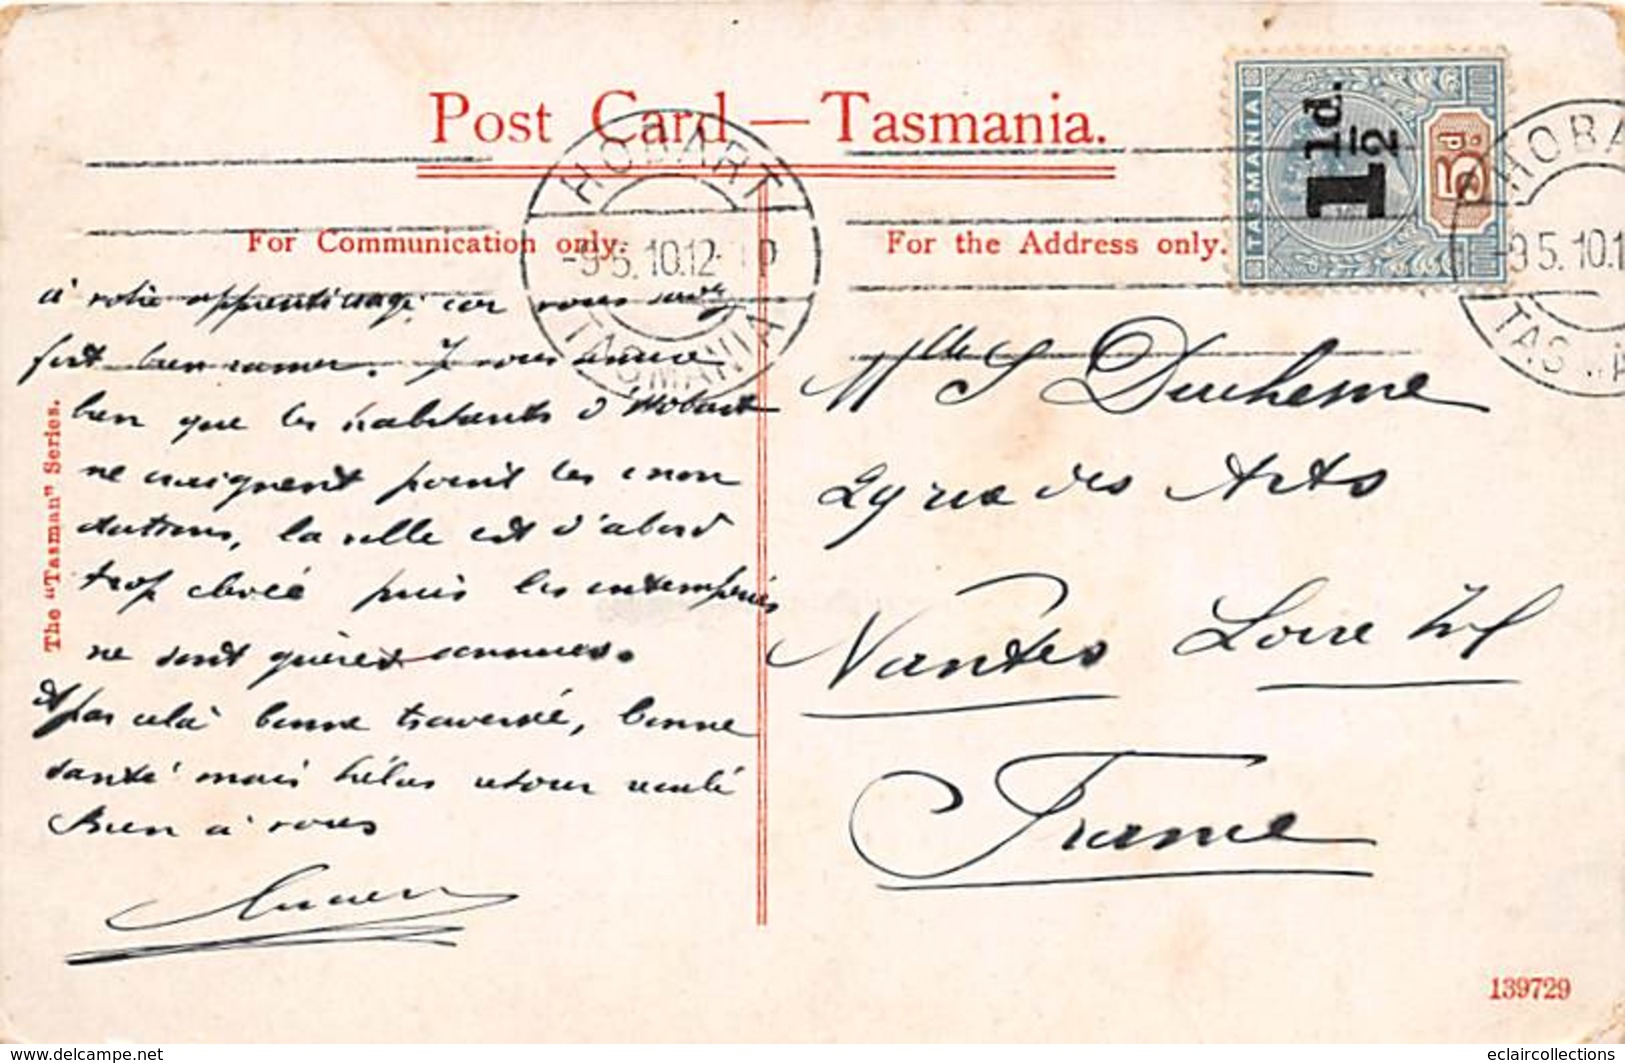 Post Card — Tasmania.
For Communication only.
For the Address only.
HOBART
-9 5. 10. 12- P
TASMANIA
TASMANIA
1½d.
5d.
HOBA
-9 5. 10.1
TAS
The "Tasman" Series.
à votre apprentissage, car vous savez
fort bien ramer. J vous
bien que les habitants d'Hobart
ne craignent point les inon
dations, la ville est d'abord
trop élevée puis les intempéries
ne sont guères connues.
A pas cela bonne traversée, bonne
santé mais hélas retour reculé
Bien à vous
Lucien
Mlle S Duchesne
29 rue des Arts
Nantes Loire Inf
France
139729
www.delcampe.net
eclaircollections